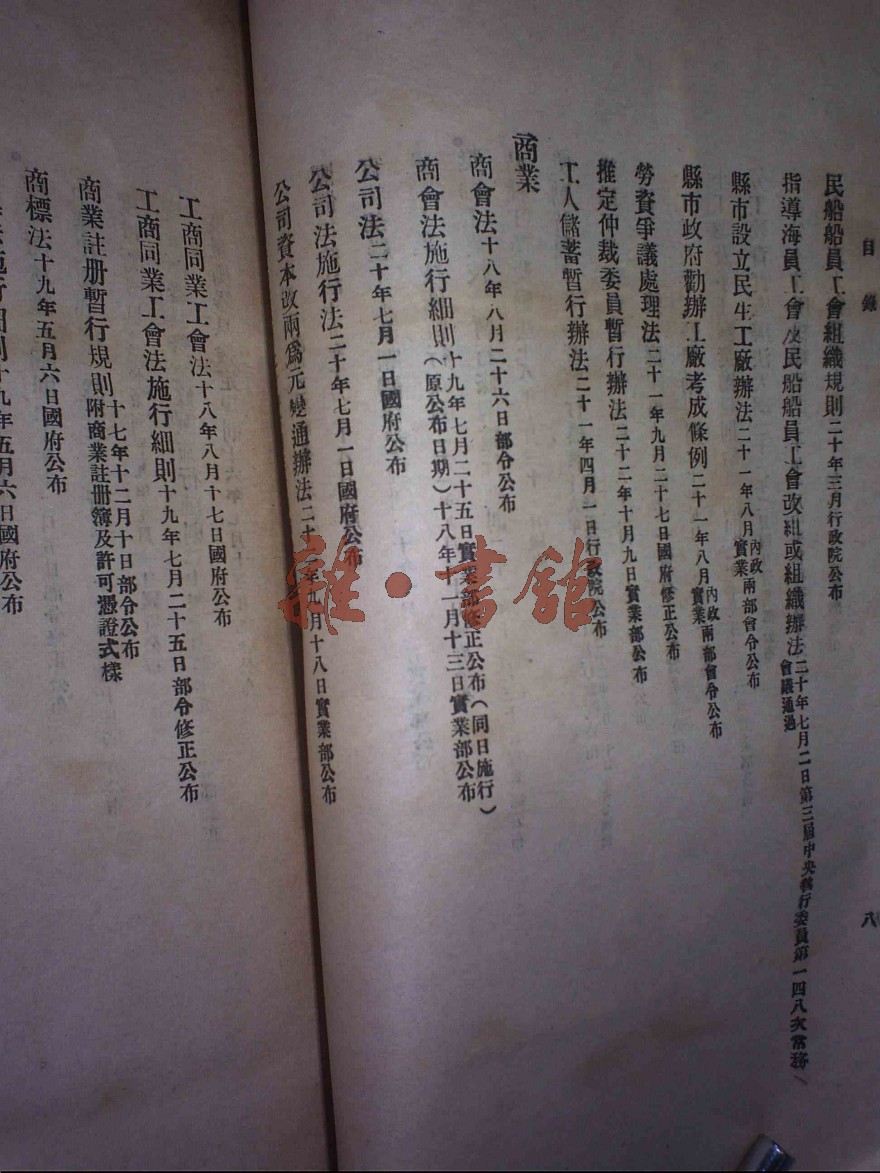 目錄
八
民船船員工會組織規則二十年三月行政院公布
指導海員工會及民船船員工會改組或組織辦法二十年七月二日第三屆中央執行委員第一四八次常務
會議通過
縣市設立民生工廠辦法二十一年八月內政實業兩部會令公布
縣市政府勸辦工廠考成條例二十一年八月內政實業兩部會令公布
勞資爭議處理法二十一年九月二十七日國府修正公布
推定仲裁委員暫行辦法二十二年十月九日實業部公布
工人儲蓄暫行辦法二十一年四月一日行政院公布
商業
商會法十八年八月二十六日部令公布
商會法施行細則十九年七月二十五日實業部修正公布(同日施行)
(原公布日期)十八年十一月十三日實業部公布
公司法二十年七月一日國府公布
公司法施行法二十年七月一日國府公布
公司資本改兩為元變通辦法二十年九月十八日實業部公布
工商同業工會法十八年八月十七日國府公布
工商同業工會法施行細則十九年七月二十五日部令修正公布
商業註册暫行規則十七年十二月十日部令公布
附商業註册簿及許可憑證式樣
商標法十九年五月六日國府公布
法施行細則十九年五月六日國府公布
雜·書館